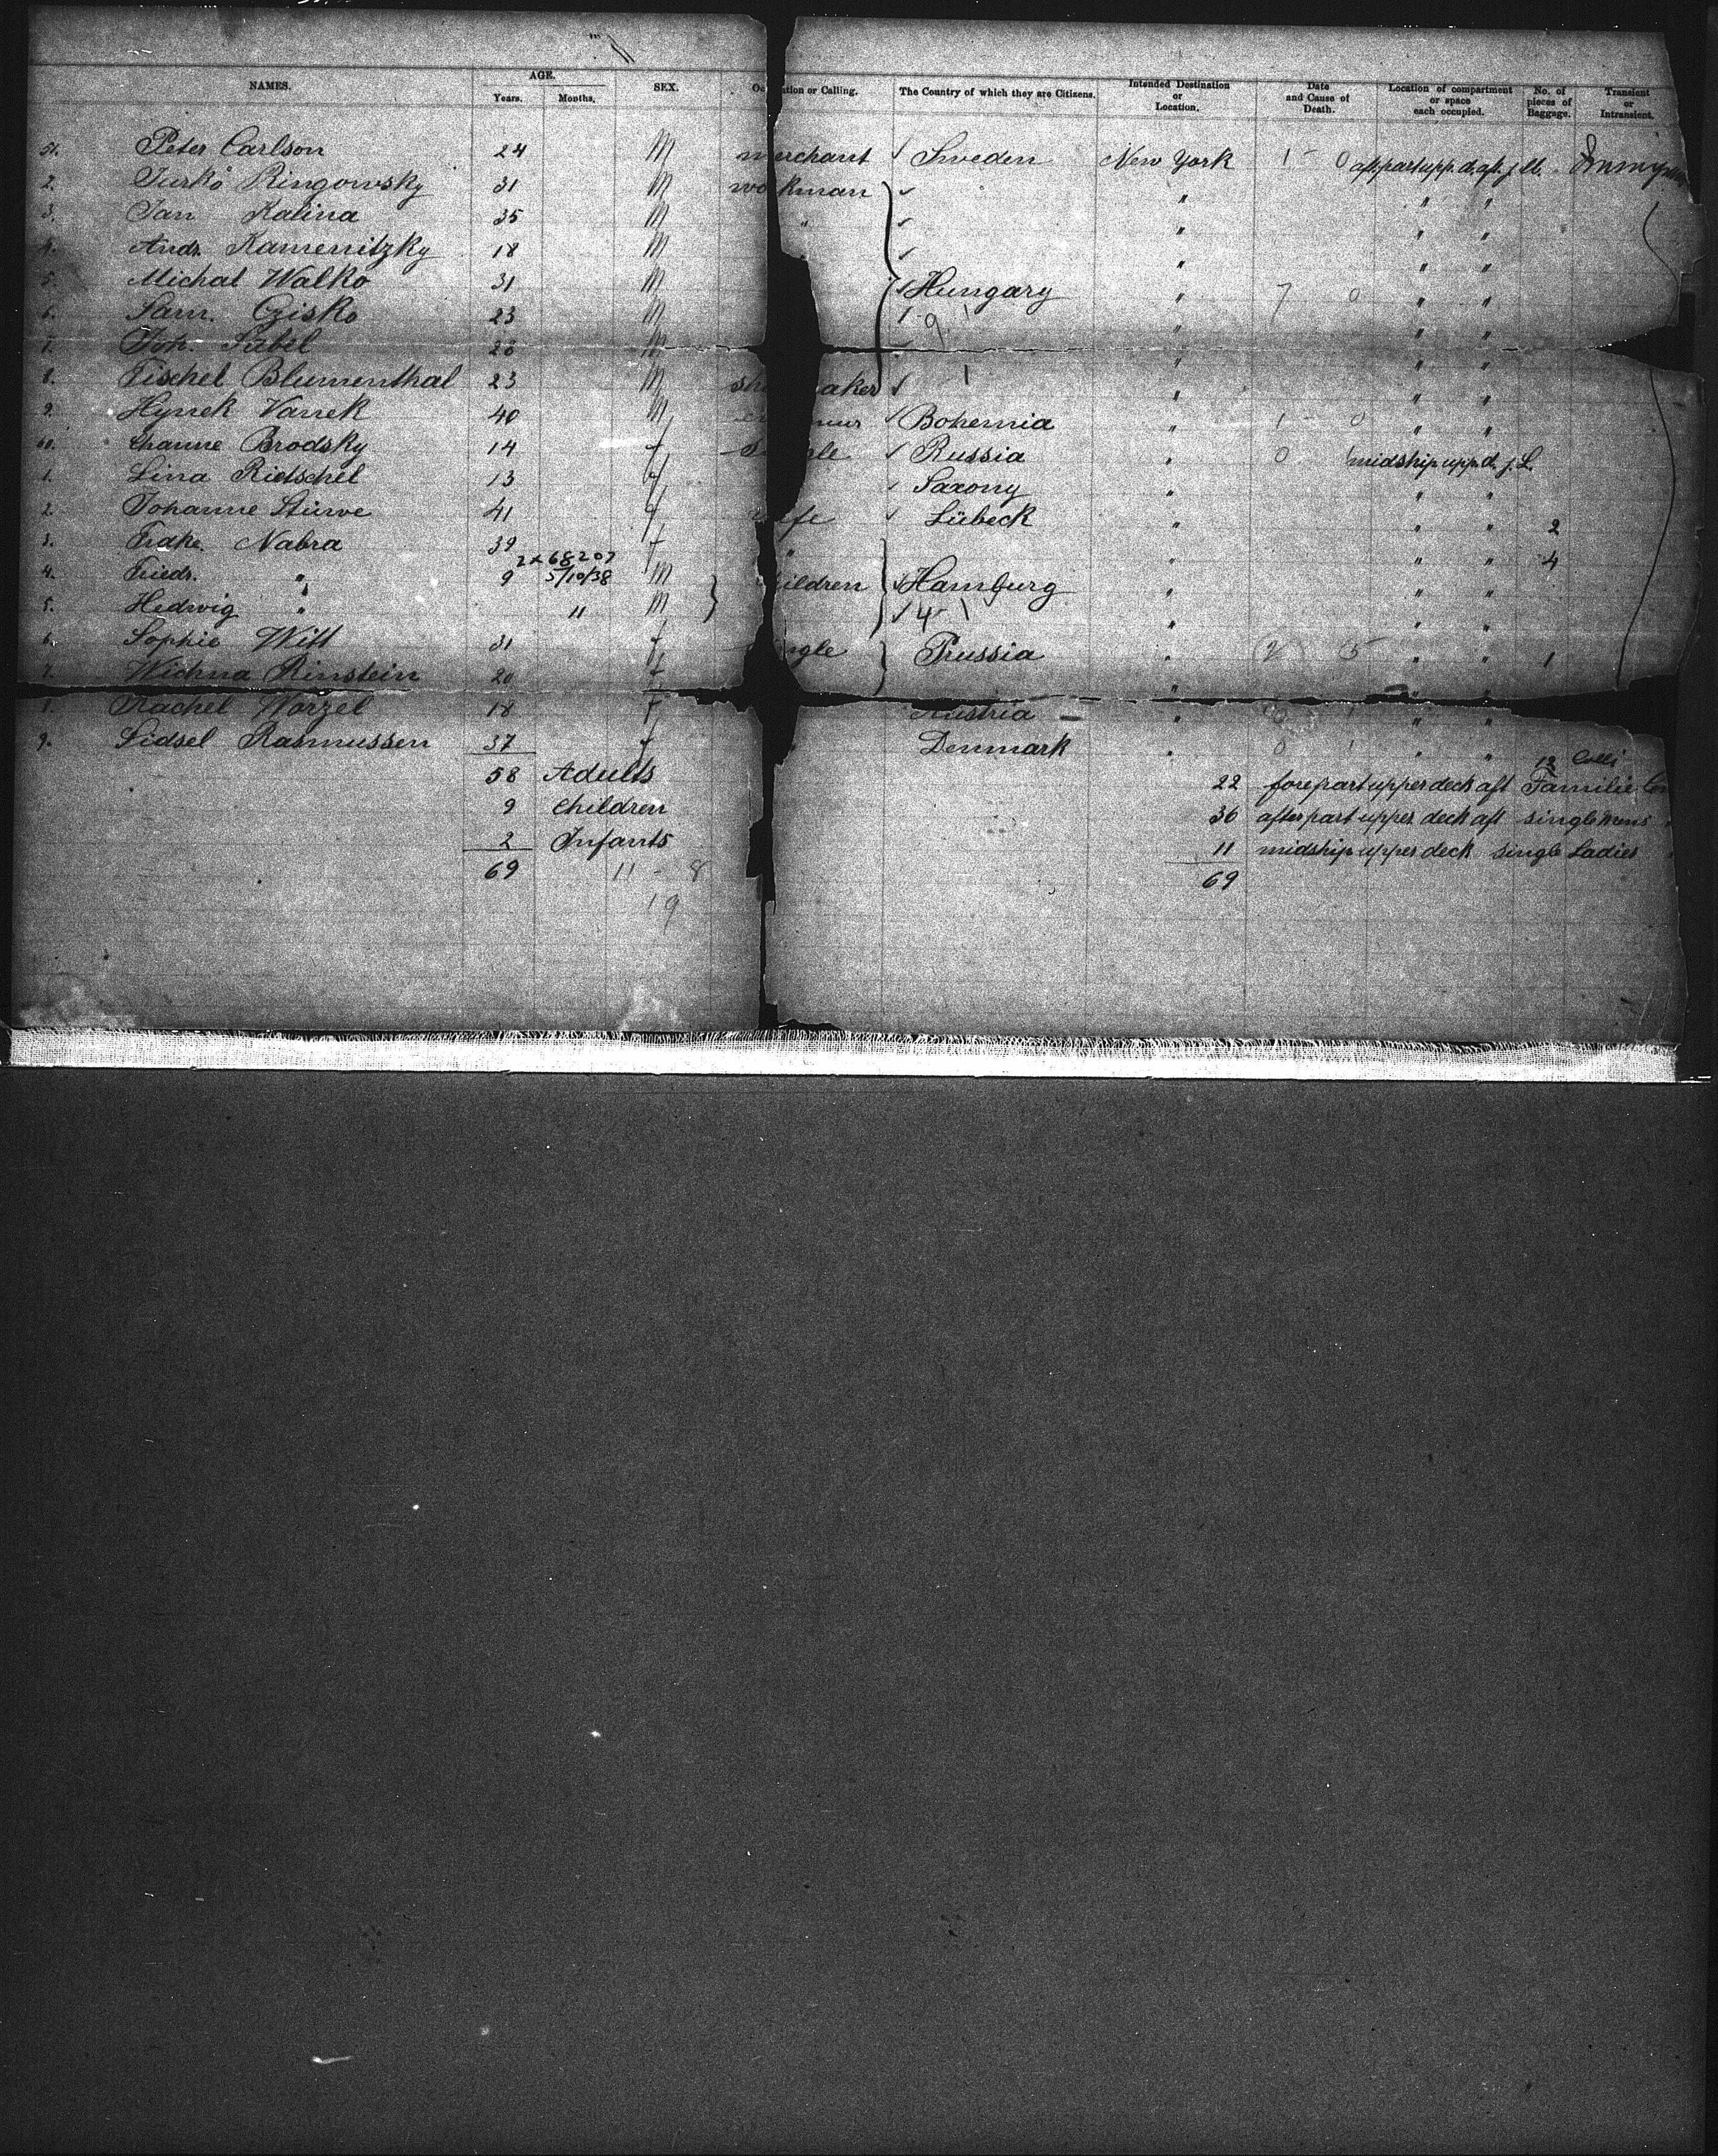 NAMES. AGE. Years. Months. SEX. ation or Calling. The Country of which they are Citizens. Intended Destination or Location. Date and Cause of Death. Location of compartment or space each occupied. No. of pieces of Baggage. Transient or Intransient.
51. Peter Carlson 24 M merchant ✓ Sweden New York 1 - 0 aft.part upp.d.aft.
2. Ringowsky 31 M workman ✓ " " "
3. Jan Kalina 35 M " ✓ " " "
4. Andr. Kamenitzky 18 M ✓ " " "
5. Michal Walko 31 M ✓ Hungary " 7 0 " "
6. Sam. Czisko 23 M 9 1 " " "
7. Joh. Sabel 28 M " " "
8. Fischel Blumenthal 23 M sh aker ✓ 1 " " "
9. Hynek Vanek 40 M ✓ Bohemia " 1 - 0 " "
60. Channe Brodsky 14 f S le ✓ Russia " 0 midship upp d. j. L.
1. Lina Rietschel 13 f ✓ Saxony " " "
2. Johanne Stüwe 41 f w fe ✓ Lübeck " " " 2
3. Frdke. Nabra 39 f " " " " 4
2x68207
4. Friedr. " 9 5/10/38 M } ildren ✓ Hamburg " " "
5. Hedwig " 11 M ✓ 4 1 " " "
6. Sophie Witt 31 f ngle } Prussia " 2 5 " " 1
7. Wichna Rinstein 20 f " " "
8. Rachel Worzel 18 f Austria " " "
9. Sidsel Rasmussen 37 f " Denmark " 0 1 " "
12 Colli
58 Adults 22 forepart upper deck aft Familie
9 Children 36 after part upper deck aft single mens "
2 Infants 11 midship upper deck single Ladies
69 11 - 8 69
19